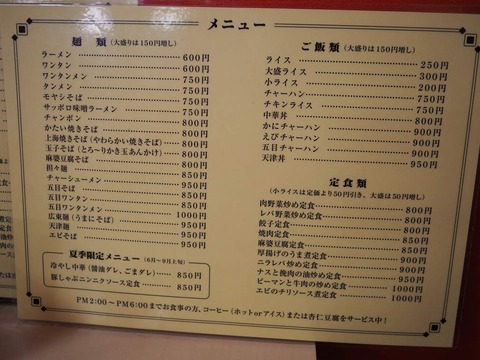 メニュー
麺 類 (大盛りは150円増し)
ラーメン 600円
ワンタン 600円
ワンタンメン 750円
タンメン 750円
モヤシそば 750円
サッポロ味噌ラーメン 750円
チャンポン 800円
かたい焼きそば 800円
上海焼きそば(やわらかい焼きそば) 800円
玉子そば(とろ〜りかき玉あんかけ) 800円
麻婆豆腐そば
担々麺 850円
チャーシューメン 850円
五目そば
五目ワンタン
五目ワンタンメン
広東麺(うまにそば) 1000円
天津麺 950円
エビそば 950円
夏季限定メニュー (6月〜9月上旬)
冷やし中華(醤油ダレ、ごまダレ) 850円
豚しゃぶニンニクソース定食 850円
ご飯類 (大盛りは150円増し)
ライス 250円
大盛ライス 300円
小ライス 200円
チャーハン 750円
チキンライス 750円
中華丼 800円
かにチャーハン 900円
えびチャーハン 900円
五目チャーハン 900円
天津丼 950円
定食類
(小ライスは定価より50円引き、大盛は50円増し)
肉野菜炒め定食 800円
レバ野菜炒め定食 800円
餃子定食 800円
焼肉定食
麻婆豆腐定食
厚揚げのうま煮定食
ニラレバ炒め定食
ナスと挽肉の油炒め定食
ピーマンと牛肉の油炒め定食 1000円
エビのチリソース煮定食 1000円
PM2:00〜PM6:00までお食事の方、コーヒー(ホットorアイス)または杏仁豆腐をサービス中!